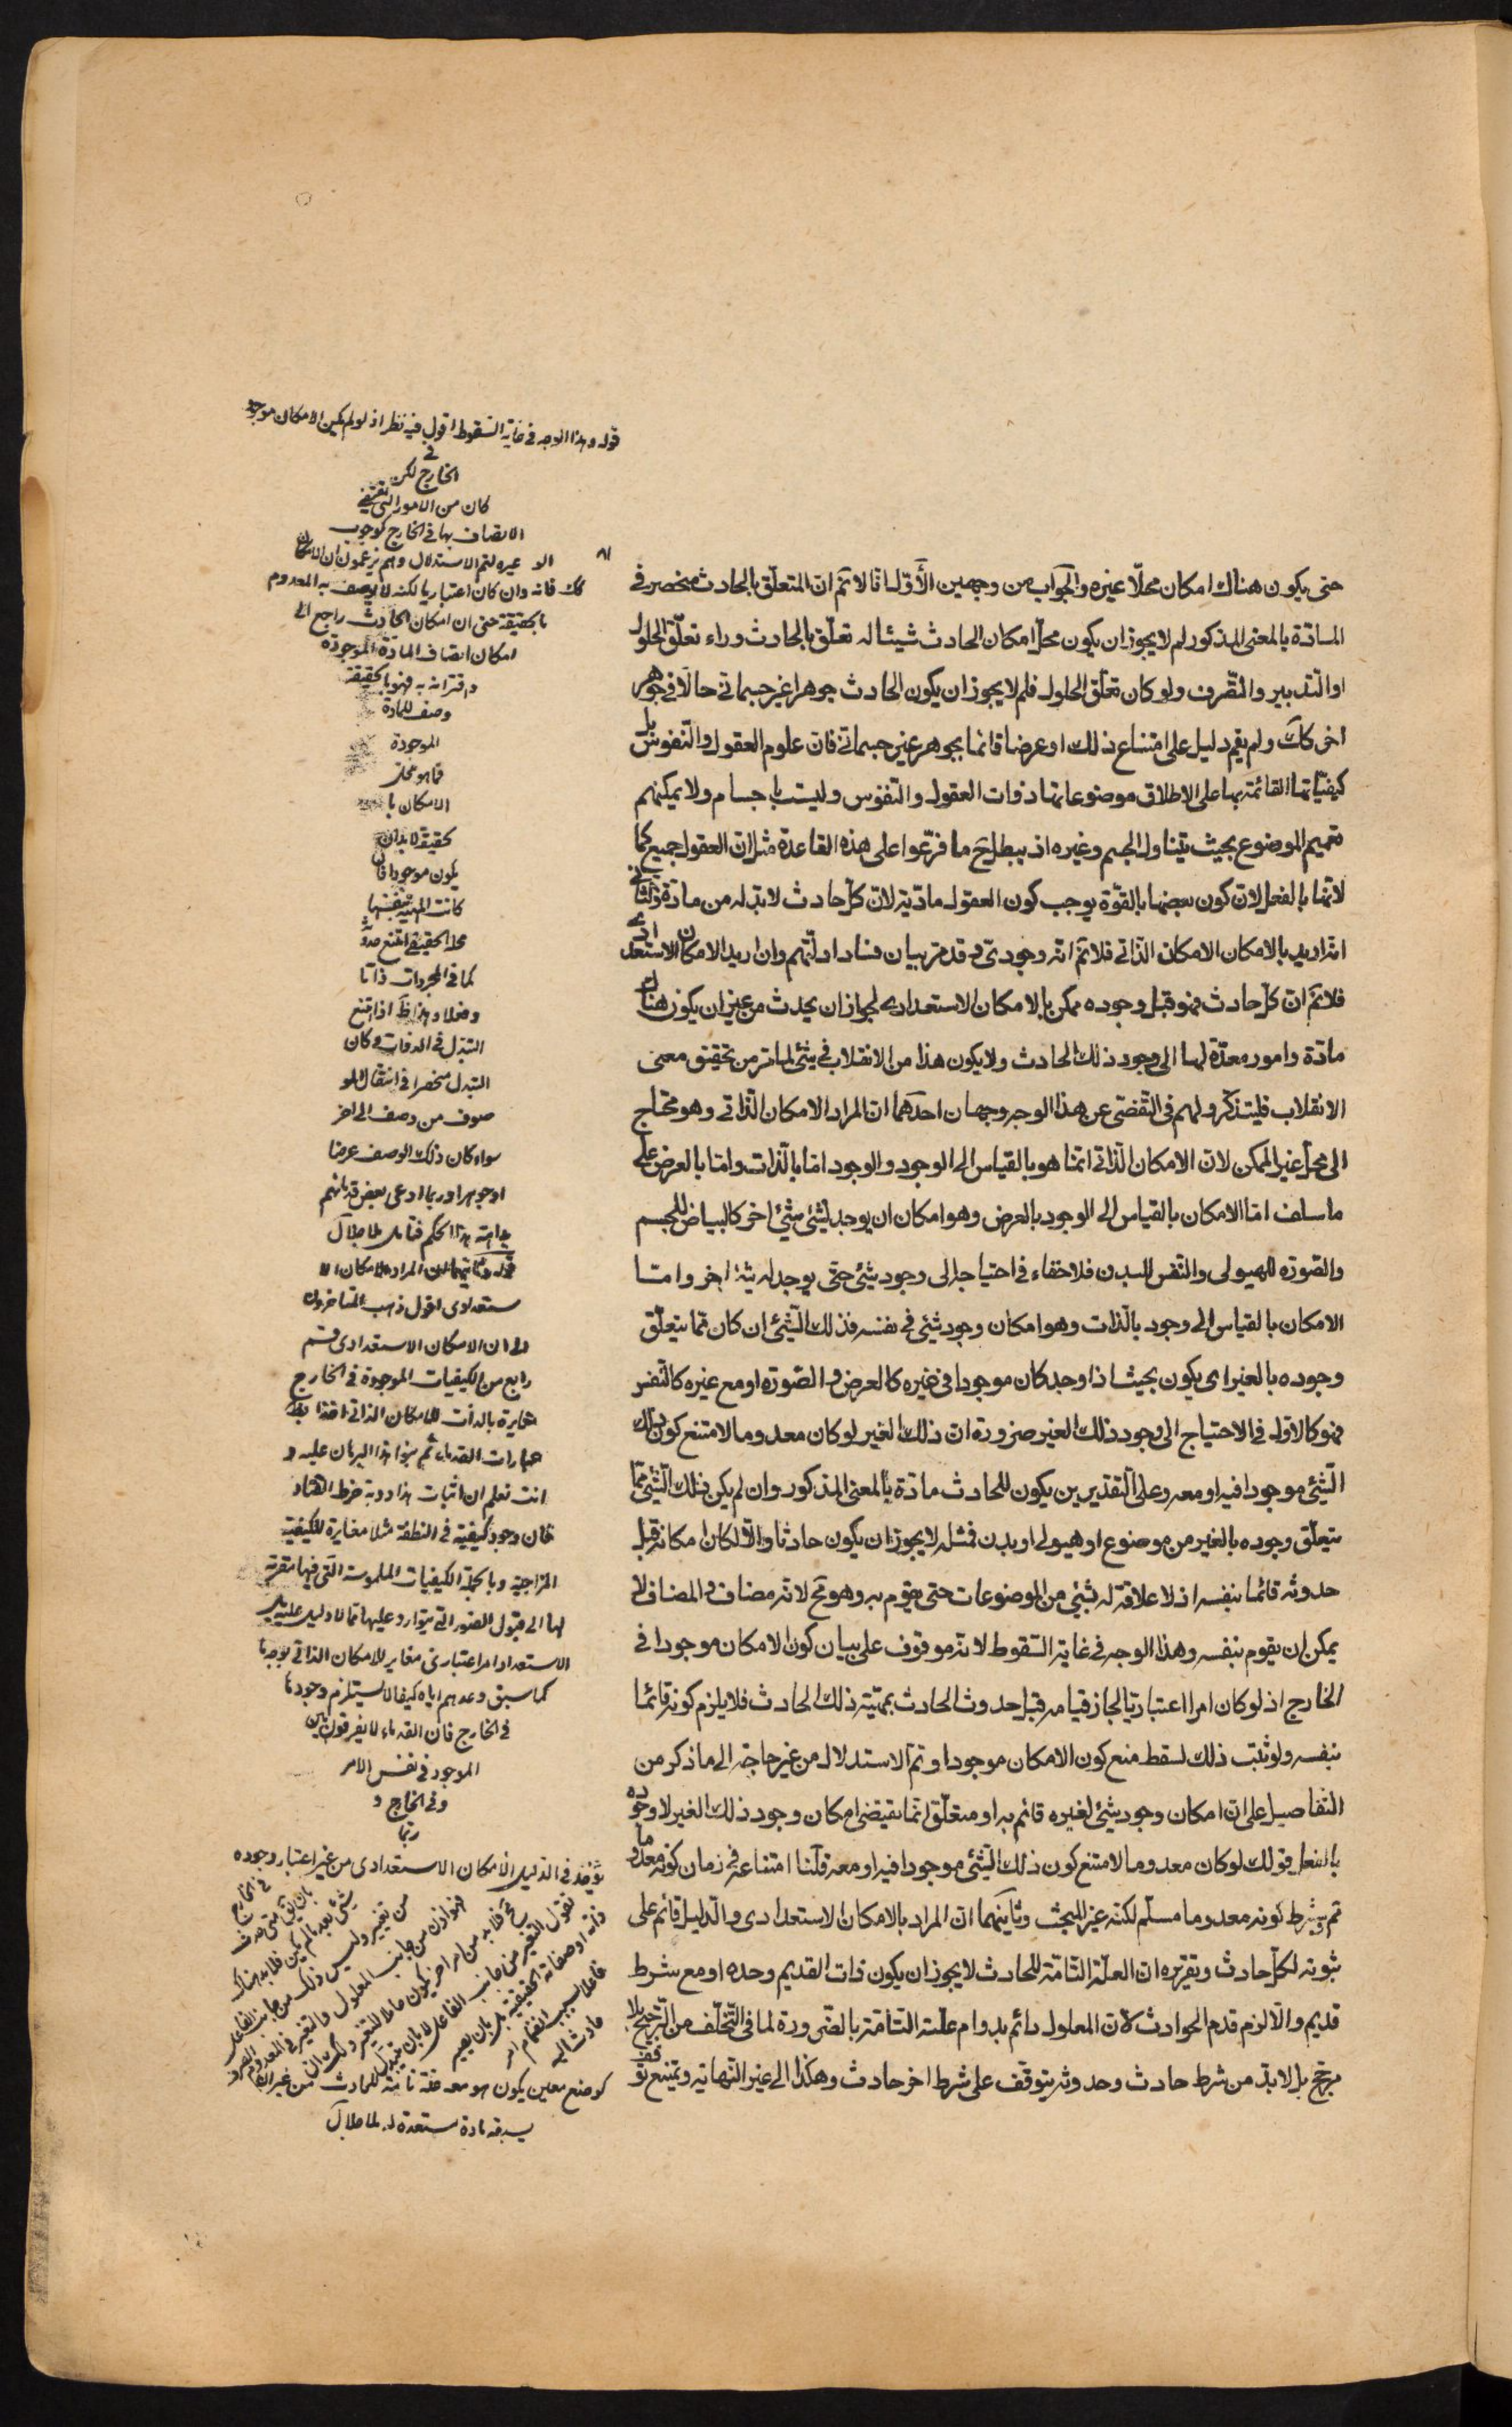 حتى يكون هناك امكان محلّا غيره والجواب من وجهين الأوّل انا لا نمّ ان المتعلّق بالحادث منحصر في
المادّة بالمعنى المذكور لم لا يجوز ان يكون محلّ امكان الحادث شيئا له تعلّق بالحادث وراء تعلّق الحلول
او التّدبير والتّصّرف ولو كان تعلّق الحلول فلم لا يجوز ان يكون الحادث جوهرا غير جسمانى حالّا في جوهر
اخر كك ولم يقم دليل على امتناع ذلك او عرضا قائما بجوهر غير جسمانى فان علوم العقول والنّفوس بل
كيفيّاتها القائمة بها على الاطلاق موضوعاتها ذوات العقول والنّفوس وليست باجسام ولا يمكنهم
تعميم الموضوع بحيث يتناول الجسم وغيره اذ يبطل ح ما فرّعوا على هذه القاعدة مثل ان العقول جميع كما
لاتها بالفعل لان كون بعضها بالقوّة يوجب كون العقول مادّية لان كلّ حادث لا بدّ له من مادّة والثّانى
انه اريد بالامكان الامكان الذّاتى فلا نمّ انّه وجودىّ وقد مرّ بيان فساد ادلّتهم وان اريد الامكان الاستعدادى
فلا نمّ ان كلّ حادث فهو قبل وجوده ممكن بالامكان الاستعدادى لجواز ان يحدث من غير ان يكون هناك
مادّة وامور معدّة لها الى وجود ذلك الحادث ولا يكون هذا من الانقلاب في شئ لما مرّ من تحقيق معنى
الانقلاب فليتذكّر ولهم في التّفصّى عن هذا الوجه وجهان احدهما انّ المراد الامكان الّذاتى وهو محتاج
الى محلّ غير الممكن لان الامكان الّذاتى انّما هو بالقياس الى الوجود والوجود امّا بالّذات وامّا بالعرض على
ما سلف امّا الامكان بالقياس الى الوجود بالعرض وهو امكان ان يوجد لشئ شئ اخر كالبياض للجسم
والصّورة للهيولى والنّفس للبدن فلا خفاء في احتياجه الى وجود شئ حتى يوجد له شئ اخر وامّا
الامكان بالقياس الى وجود بالّذات وهو امكان وجود شئ في نفسه فذلك الّشئ ان كان ممّا يتعلّق
وجوده بالغير اى يكون بحيث اذا وجد كان موجودا في غيره كالعرض والصّورة او مع غيره كالنّفس
فهو كالاوّل في الاحتياج الى وجود ذلك الغير ضرورة ان ذلك الغير لو كان معدوما لامتنع كون ذلك
الّشئ موجودا فيه او معه وعلى التّقديرين يكون للحادث مادّة بالمعنى المذكور وان لم يكن ذلك الّشئ ممّا
يتعلّق وجوده بالغير من موضوع او هيولى او بدن فمثله لا يجوز ان يكون حادثا والّا لكان امكانه قبل
حدوثه قائما بنفسه اذ لا علاقة له بشئ من الموضوعات حتى يقوم به وهو مح لانّه مضاف والمضاف لا
يمكن ان يقوم بنفسه وهذا الوجه في غاية السّقوط لانّه موقوف على بيان كون الامكان موجودا في
الخارج اذ لو كان امرا اعتباريّا لجاز قيامه قبل حدوث الحادث بمهيّة ذلك الحادث فلا يلزم كونه قائما
بنفسه ولو ثبت ذلك لسقط منع كون الامكان موجودا وتمّ الاستدلال من غير حاجة الى ما ذكر من
التّفاصيل على انّ امكان وجود شئ لغيره قائم به او متعلّق انّما يقتضى امكان وجود ذلك الغير لا وجوده
بالفعل قولك لو كان معدوما لامتنع كون ذلك الّشئ موجودا فيه او معه قلنا امتناعه في زمان كونه معدوما
تم وبشرط كونه معدوما مسلّم لكنّه غير المبحث وثانيهما ان المراد بالامكان الاستعدادى والّدليل قائم على
ثبوته لكلّ حادث وتقريره ان العلّة التّامّة للحادث لا يجوز ان يكون ذات القديم وحده او مع شرط
قديم والّا لزم قدم الحوادث لانّ المعلول دائم بدوام علّته التّامّة بالضّرورة لما في التّخلّف من التّرجيح بلا
مرجّح بل لا بدّ من شرط حادث وحدوثه يتوقف على شرط اخر حادث وهكذا الى غير النّهاية ويمتنع توقف
قوله وهذا الوجه في غاية السّقوط اقول فيه نظر اذ لو لم يكن الامكان موجودا
في
الخارج لكن
كان من الامور التى يقتضى
الاتصاف بها في الخارج كوجوب
غيره لتم الاستدلال وهم يزعمون ان الامكان
كك فانه وان كان اعتباريا لكنه لا يوصف به المعدوم
بالحقيقة حتى ان امكان الحادث راجع الى
امكان اتصاف المادة الموجودة
واقترانه به فهو بالحقيقة
وصف للمادة
الموجودة
فما هو محل
الامكان با
لحقيقة لا بد ان
يكون موجودا فان
كانت المهية بنفسها
محله الحقيقى امتنع
كما في المجردات ذاتا
وفعلا وهذا ظ اذ امتنع
التبدل في الذوات وكان
التبدل منحصرا في انتقال المو
صوف من وصف الى اخر
سواء كان ذلك الوصف عرضا
او جوهرا وربما ادعى بعض
بداهة هذا الحكم فتامل ملا جلال
قوله وثانيهما ان المراد بالامكان الا
ستعدادى اقول ذهب المتاخرون
الى ان الامكان الاستعدادى قسم
رابع من الكيفيات الموجودة في الخارج
مغايرة بالذات للامكان الذاتى
عبارات القدماء ثم بنوا هذا البرهان عليه و
انت تعلم ان اثبات هذا دونه خرط القتاد
فان وجود كيفية في النطفة مثلا مغايرة للكيفية
المزاجية وبالجملة الكيفيات الملموسة التى فيها مقربة
لها الى قبول الصور التى يتوارد عليها مما لا دليل عليه بل
الاستعداد امر اعتبارى مغاير للامكان الذاتى بوجه ما
كما سبق وعدهم اياه كيفا لا يستلزم وجوده
في الخارج فان القدماء لا يفرقون بين
الموجود في نفس الامر
وفي الخارج و
ربما
يؤخذ في الدليل الامكان الاستعدادى من غير اعتبار وجوده
في الخارج
شئ بعد ما لم يكن فلا بد هناك
من تغيير وليس ذلك من جانب الفاعل
فهو اذن من جانب المعلول
كوضع معين يكون هو معه
يسبقه مادة مستعدة له ملا جلال